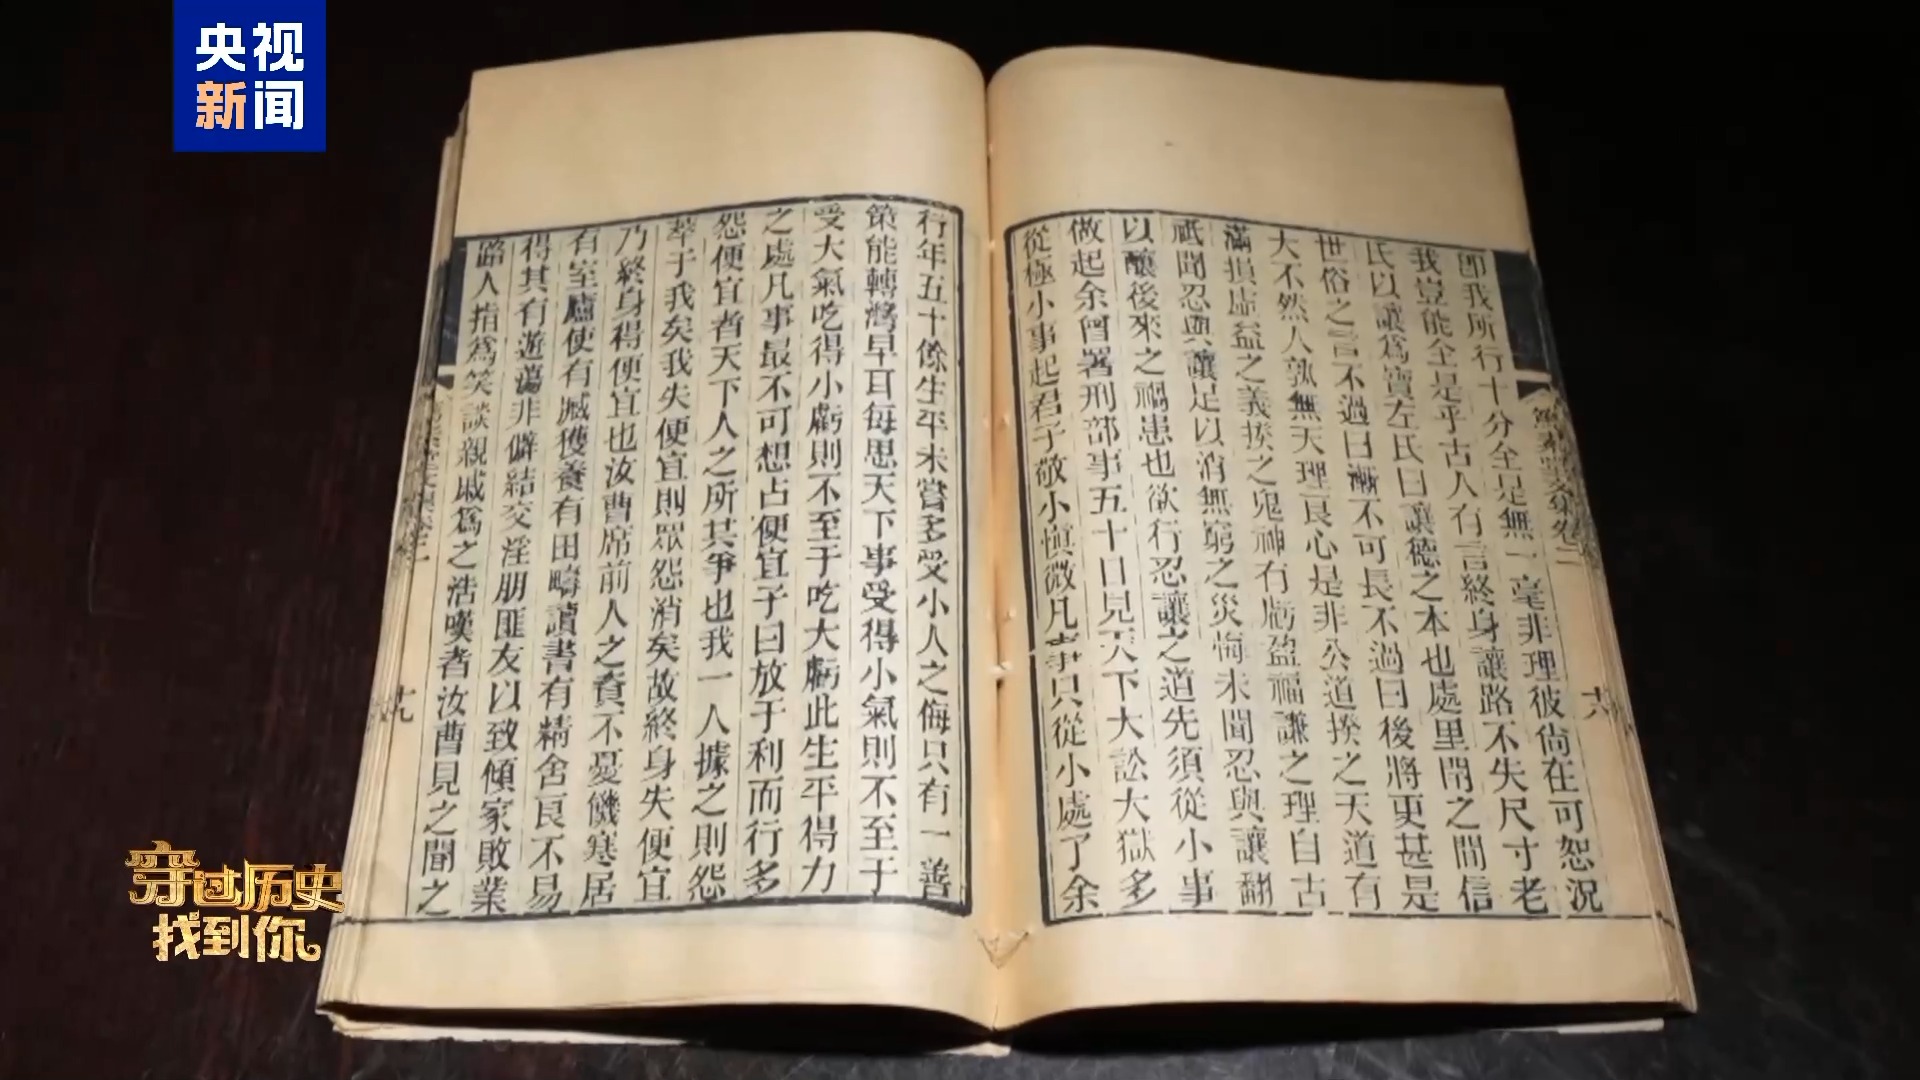 央视
新闻
即我所行十分全是無一毫非理彼尙在可恕況
我豈能全是乎古人有言終身讓路不失尺寸老
氏以讓爲寶左氏曰讓德之本也處里閈之間信
世俗之言不過曰漸不可長不過曰後將更甚是
大不然人孰無天理良心是非公道揆之天道有
滿損虛益之義揆之鬼神有虧盈福謙之理自古
祇聞忍與讓足以消無窮之災悔未聞忍與讓翻
以釀後來之禍患也欲行忍讓之道先須從小事
做起余曾署刑部事五十日見天下大訟大獄多
從極小事起君子敬小愼微凡事只從小處了余
行年五十餘生平未嘗多受小人之侮只有一善
策能轉灣早耳每思天下事受得小氣則不至于
受大氣吃得小虧則不至于吃大虧此生平得力
之處凡事最不可想占便宜子曰放于利而行多
怨便宜者天下人之所共爭也我一人據之則怨
萃于我矣我失便宜則眾怨消矣故終身失便宜
乃終身得便宜也汝曹席前人之資不憂饑寒居
有室廬使有臧獲養有田疇讀書有精舍良不易
得其有遊蕩非僻結交淫朋匪友以致傾家敗業
路人指爲笑談親戚爲之浩嘆者汝曹見之聞之
六
十九
穿过历史
找到你